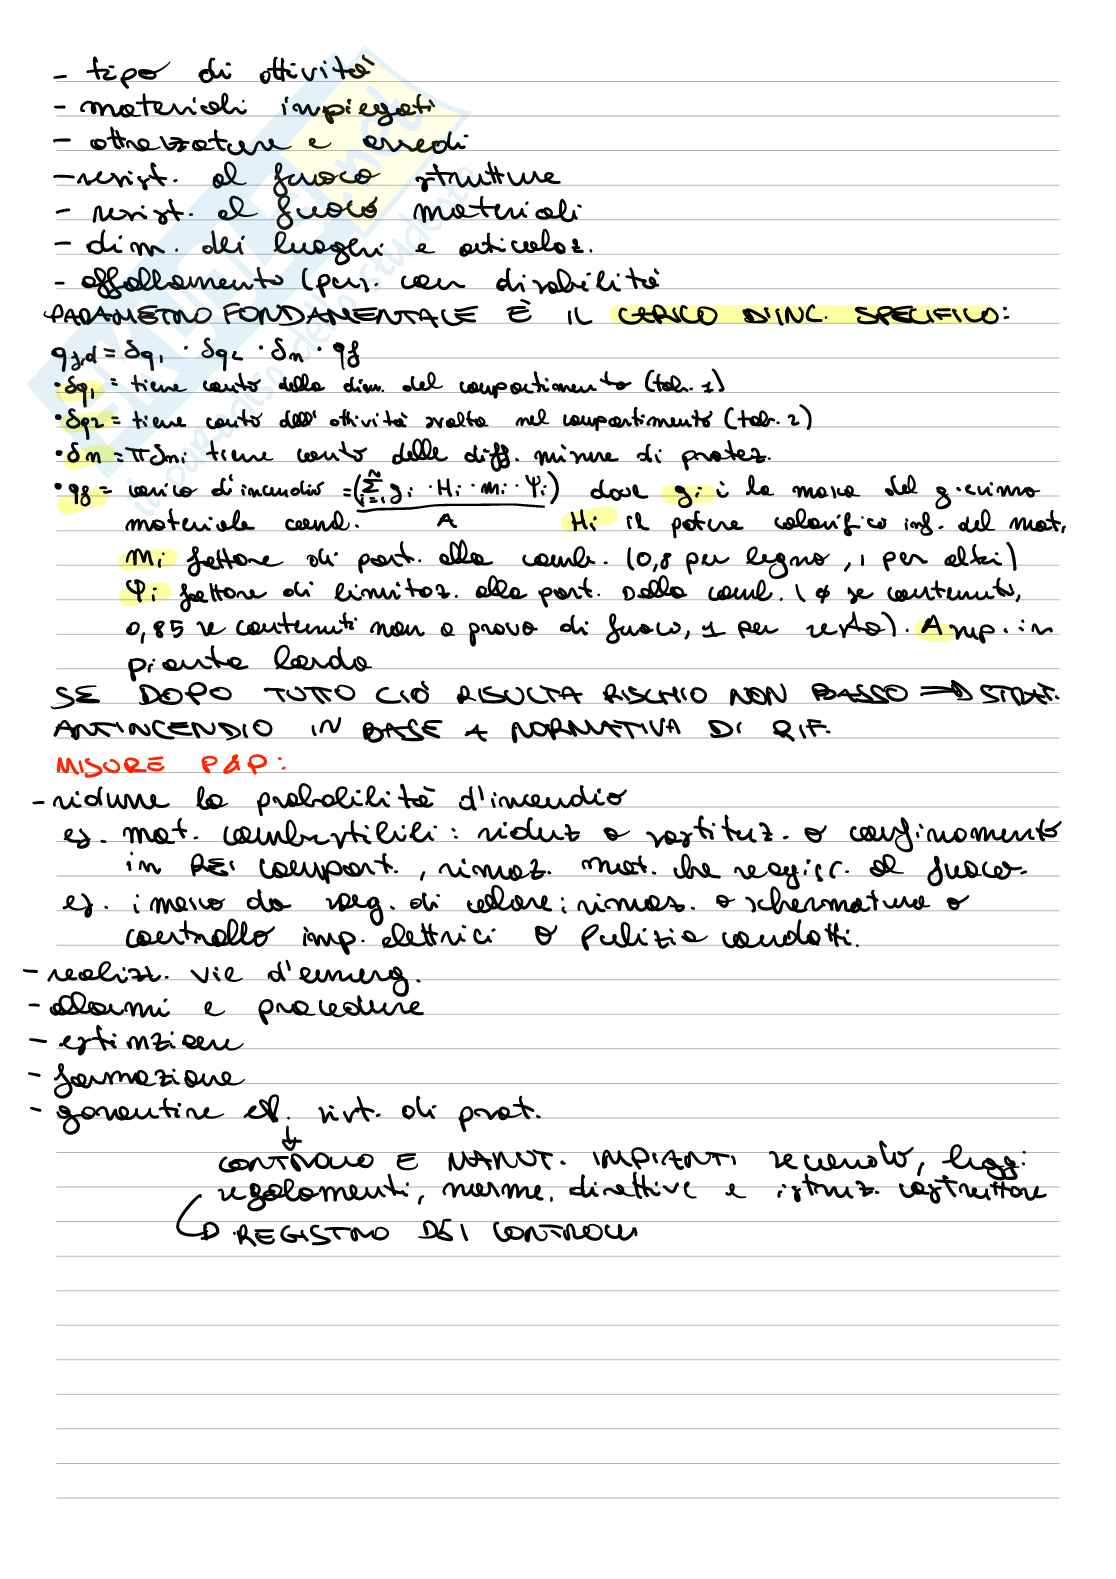 - tipo di attività
- materiali impiegati
- attrezzature e arredi
- resist. al fuoco strutture
- resist. al fuoco materiali
- dim. dei luoghi e articolaz.
- affollamento (pers. con disabilità
PARAMETRO FONDAMENTALE È IL CARICO D'INC. SPECIFICO:
qf,d = δq1 · δq2 · δn · qf
• δq1 = tiene conto della dim. del compartimento (tab. 1)
• δq2 = tiene conto dell'attività svolta nel compartimento (tab. 2)
• δn = πδni tiene conto delle diff. misure di protez.
• qf = carico d'incendio = (Σ i=1 N gi · Hi · mi · Ψi) / A dove gi è la massa del g-esimo
materiale comb. Hi il potere calorifico inf. del mat,
mi fattore di part. alla comb. (0,8 per legno, 1 per altri)
Ψi fattore di limitaz. alla part. Della comb. (ø se contenuti,
0,85 se contenuti non a prova di fuoco, 1 per resto). A sup. in
pianta lorda
SE DOPO TUTTO CIÒ RISULTA RISCHIO NON BASSO => STRAT.
ANTINCENDIO IN BASE A NORMATIVA DI RIF.
MISURE P&P:
- ridurre la probabilità d'incendio
es. mat. combustibili: riduz o sostituz. o confinamento
in REI compart., rimoz. mat. che reagisc. al fuoco.
es. innesco da sorg. di calore: rimoz. o schermatura o
controllo imp. elettrici o Pulizia condotti.
- realizz. vie d'emerg.
- allarmi e procedure
- estinzione
- formazione
- garantire eff. sist. di prot.
↓
CONTROLLO E MANUT. IMPIANTI secondo, leggi
regolamenti, norme, direttive e istruz. costruttore
→ REGISTRO DEI CONTROLLI